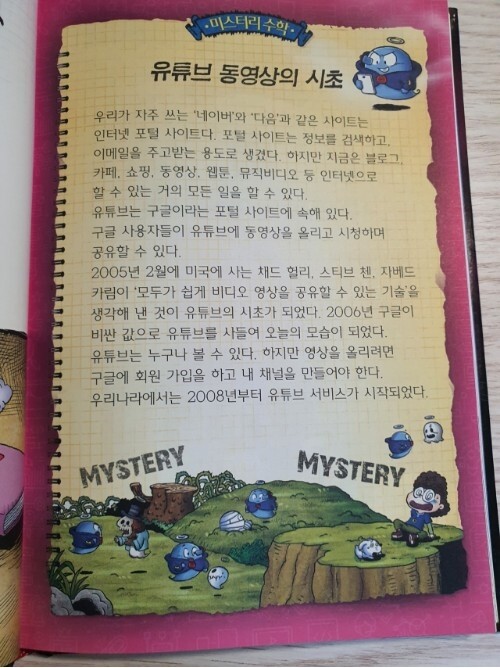 미스터리 수학
유튜브 동영상의 시초
우리가 자주 쓰는 '네이버'와 '다음'과 같은 사이트는
인터넷 포털 사이트다. 포털 사이트는 정보를 검색하고,
이메일을 주고받는 용도로 생겼다. 하지만 지금은 블로그,
카페, 쇼핑, 동영상, 웹툰, 뮤직비디오 등 인터넷으로
할 수 있는 거의 모든 일을 할 수 있다.
유튜브는 구글이라는 포털 사이트에 속해 있다.
구글 사용자들이 유튜브에 동영상을 올리고 시청하며
공유할 수 있다.
2005년 2월에 미국에 사는 채드 헐리, 스티브 첸, 자베드
카림이 '모두가 쉽게 비디오 영상을 공유할 수 있는 기술'을
생각해 낸 것이 유튜브의 시초가 되었다. 2006년 구글이
비싼 값으로 유튜브를 사들여 오늘의 모습이 되었다.
유튜브는 누구나 볼 수 있다. 하지만 영상을 올리려면
구글에 회원 가입을 하고 내 채널을 만들어야 한다.
우리나라에서는 2008년부터 유튜브 서비스가 시작되었다.
MYSTERY
MYSTERY